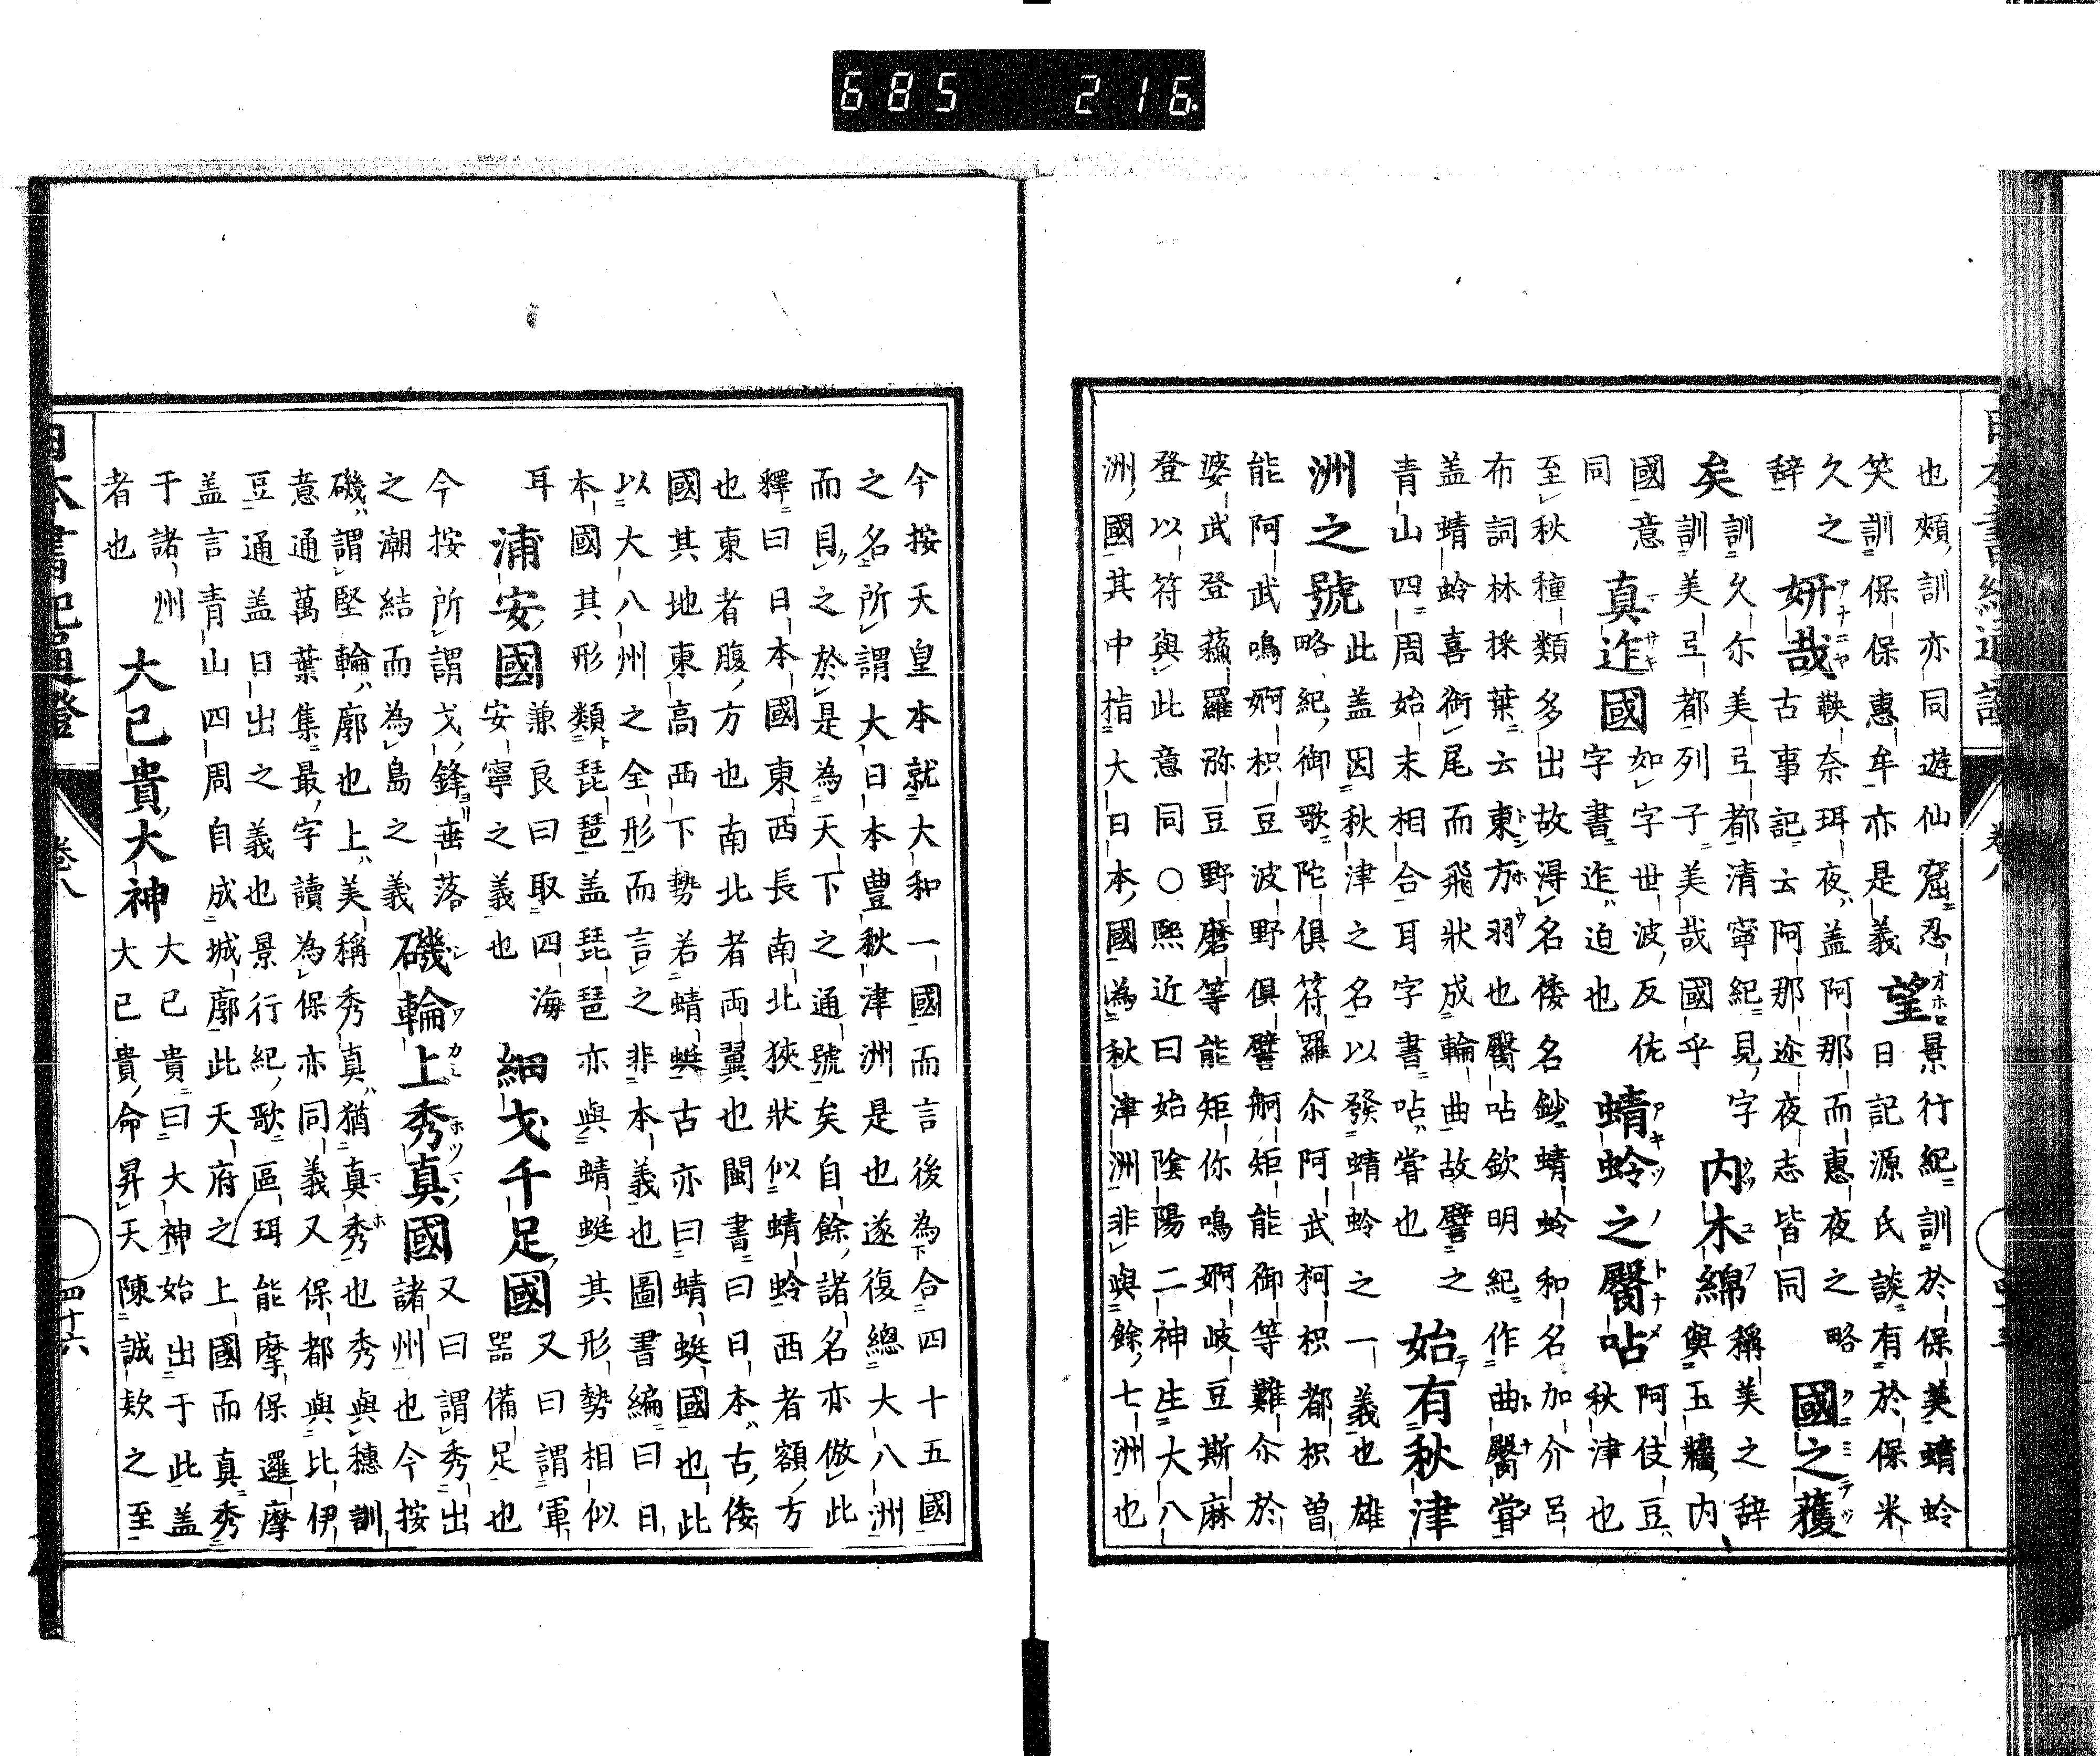 685 216.
也頰訓亦同遊仙窟忍景行紀訓於保美蜻蛉
笑訓保保惠牟亦是義 望日記源氏談有於保米
久之 妍哉鞅奈珥夜盖阿那而惠夜之略 國之蒦
辞 古事記云阿那迩夜志皆同
矣訓久尓美亞都清寧紀見字 内木綿稱美之辞
訓美亞都列子美哉國乎 與玉牆内
國意 真迮國如字世波反佐 蜻蛉之臀呫阿伎豆
同 字書迮迫也 秋津也
至秋種類多出故得名倭名鈔蜻蛉和名加介呂
布詞林採葉云東方羽也臀呫欽明紀作曲臀甞
盖蜻蛉喜銜尾而飛状成輪曲故譬之 始有秋津
青山四周始末相合耳字書呫甞也
洲之號此盖因秋津之名以發蜻蛉之一義也雄
略紀御歌陀倶符羅尒阿武柯枳都枳曽
能阿武鳴婀枳豆波野倶譬舸矩能御等難尒於
婆武登蘓羅弥豆野磨等能矩你鳴婀岐豆斯麻
登以符與此意同〇熙近曰始陰陽二神生大八
洲國其中指大日本國為秋津洲非與餘七洲也
今按天皇本就大和一國而言後為合四十五國
之名所謂大日本豊秋津洲是也遂復總大八洲
而目之於是為天下之通號矣自餘諸名亦倣此
釋曰日本國東西長南北狹狀似蜻蛉西者額方
也東者腹方也南北者両翼也閩書曰日本古倭
國其地東高西下勢若蜻蜓古亦曰蜻蜓國也此
以大八州之全形而言之非本義也圖書編曰日
本國其形類琵琶盖琵琶亦與蜻蜓其形勢相似
耳 浦安國兼良曰取四海 細戈千足國又曰謂軍
安寧之義也 器備足也
今按所謂戈鋒垂落 磯輪上秀真國又曰謂秀出
之潮結而為島之義 諸州也今按
磯謂堅輪廓也上美稱秀真猶真秀也秀與穗訓
意通萬葉集最字讀為保亦同義又保都與比伊
豆通盖日出之義也景行紀歌區珥能摩保邏摩
盖言青山四周自成城廓此天府之上國而真秀
于諸州 大己貴大神大己貴曰大神始出于此盖
者也 大己貴命昇天陳誠欵之至
日本書紀通證 卷八 四十六